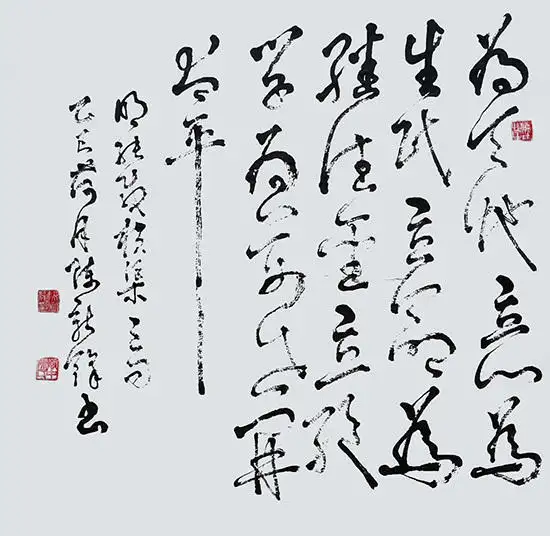 為天地立心為
生民立命為
繼往聖絕
学為万世開
太平
張載橫渠三句
荷月陳新書